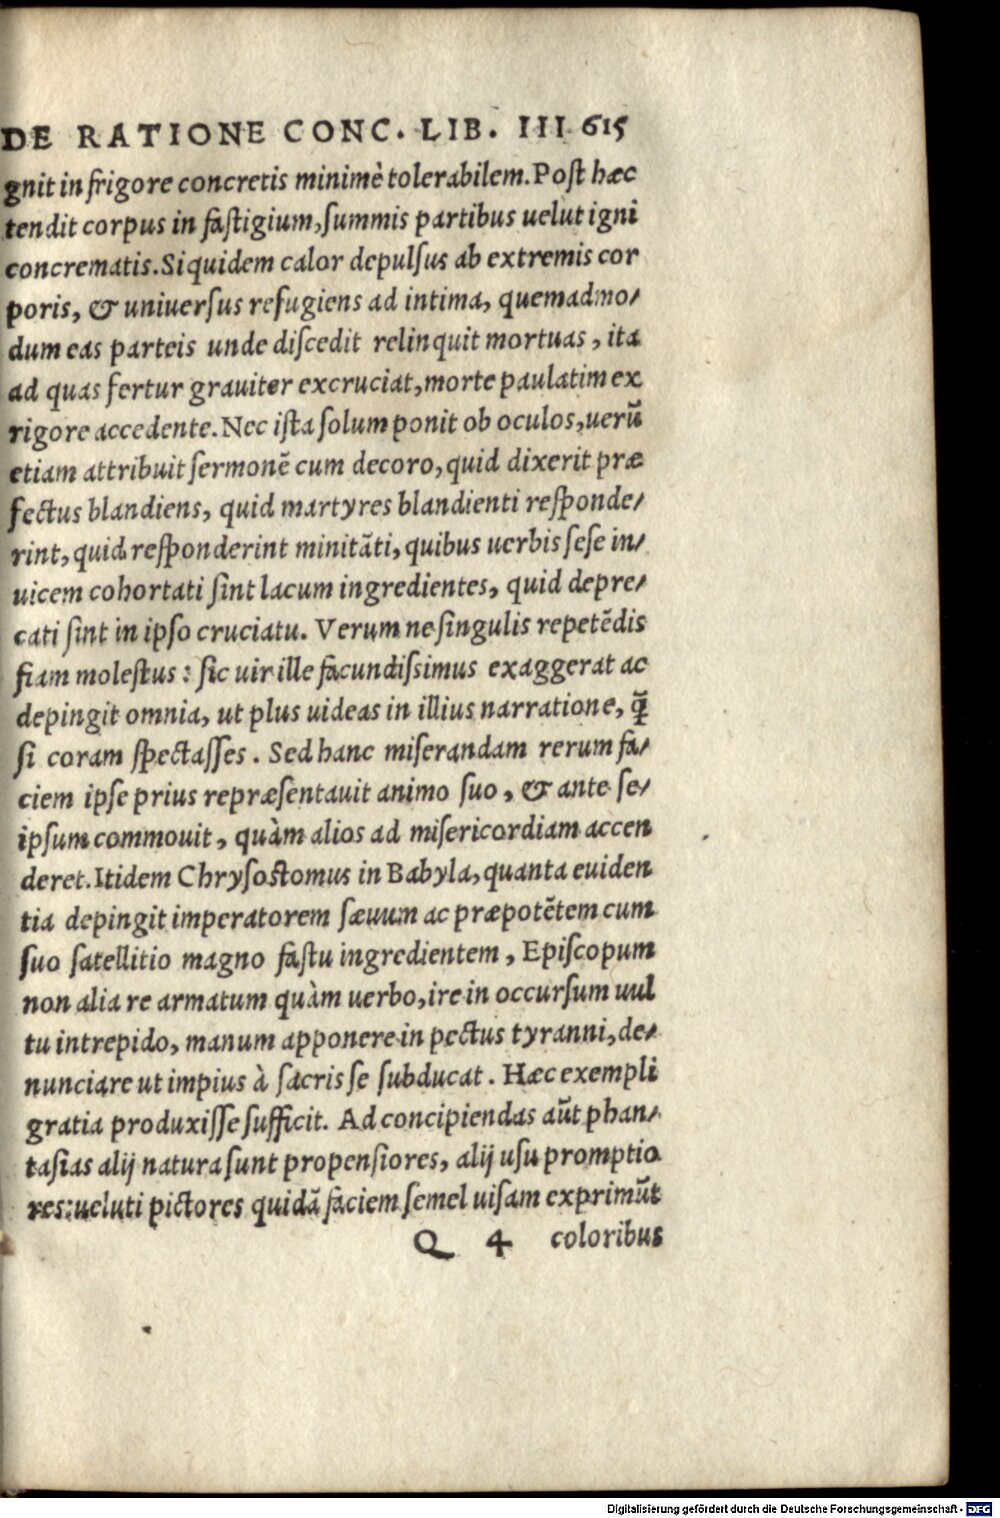 DE RATIONE CONC. LIB. III 615
gnit in frigore concretis minimè tolerabilem. Poſt hæc
tendit corpus in faſtigium, ſummis partibus uelut igni
concrematis. Siquidem calor depulſus ab extremis cor
poris, & uniuerſus refugiens ad intima, quemadmo/
dum eas parteis unde diſcedit relinquit mortuas, ita
ad quas fertur grauiter excruciat, morte paulatim ex
rigore accedente. Nec iſta ſolum ponit ob oculos, uerū
etiam attribuit ſermonē cum decoro, quid dixerit præ
fectus blandiens, quid martyres blandienti reſponde/
rint, quid reſponderint minitāti, quibus uerbis ſeſe in/
uicem cohortati ſint lacum ingredientes, quid depre/
cati ſint in ipſo cruciatu. Verum ne ſingulis repetēdis
fiam moleſtus: ſic uir ille facundiſsimus exaggerat ac
depingit omnia, ut plus uideas in illius narratione, q̄
ſi coram ſpectaſſes. Sed hanc miſerandam rerum fa/
ciem ipſe prius repræſentauit animo ſuo, & ante ſe/
ipſum commouit, quàm alios ad miſericordiam accen
deret. Itidem Chryſoſtomus in Babyla, quanta euiden
tia depingit imperatorem ſæuum ac præpotētem cum
ſuo ſatellitio magno faſtu ingredientem, Epiſcopum
non alia re armatum quàm uerbo, ire in occurſum uul
tu intrepido, manum apponere in pectus tyranni, de/
nunciare ut impius à ſacris ſe ſubducat. Hæc exempli
gratia produxiſſe ſufficit. Ad concipiendas aūt phan/
taſias alij natura ſunt propenſiores, alij uſu promptio
res: ueluti pictores quidā faciem ſemel uiſam exprimūt
Q 4 coloribus
Digitalisierung gefördert durch die Deutsche Forschungsgemeinschaft - DFG